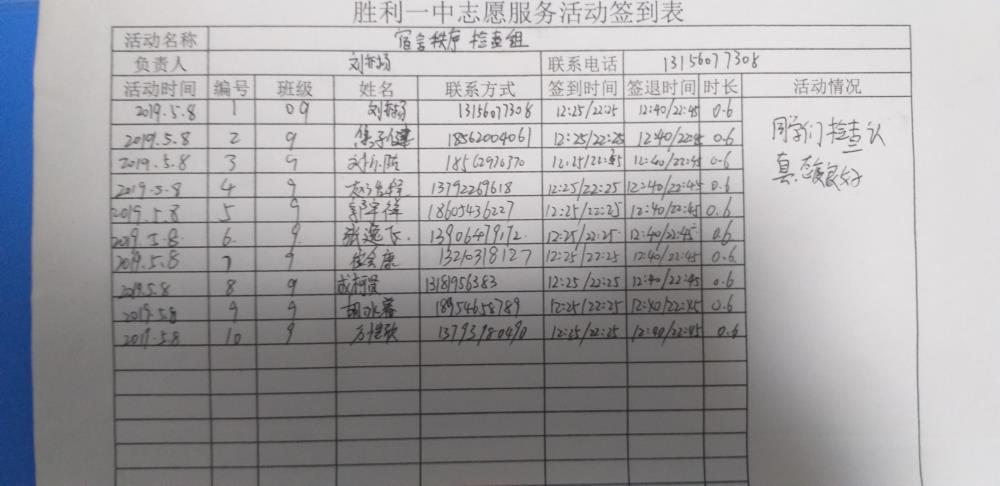 胜利一中志愿服务活动签到表
活动名称 宿舍秩序检查组
负责人 刘 联系电话 13156077308
活动时间 编号 班级 姓名 联系方式 签到时间 签退时间 时长 活动情况
2019.5.8 1 09 刘 13156077308 12:25/22:25 12:40/22:45 0.6
2019.5.8 2 9 18562004061 12:25/22:25 12:40/22:45 0.6
2019.5.8 3 9 刘 18562976370 12:25/22:25 12:40/22:45 0.6
2019.5.8 4 9 13792269618 12:25/22:25 12:40/22:45 0.6
2019.5.8 5 9 18605436227 12:25/22:25 12:40/22:45 0.6
2019.5.8. 6. 9. 张逸飞. 13906479172. 12:25/22:25 12:40/22:45 0.6
2019.5.8 7 9 康 13210318127 12:25/22:25 12:40/22:45 0.6
2019.5.8 8 9 成柯贤 13181956383 12:25/22:25 12:40/22:45 0.6
2019.5.8 9 9 胡 18954658789 12:25/22:25 12:40/22:45 0.6
2019.5.8 10 9 方 13793980490 12:25/22:25 12:40/22:45 0.6
同学们检查认
真.态度良好